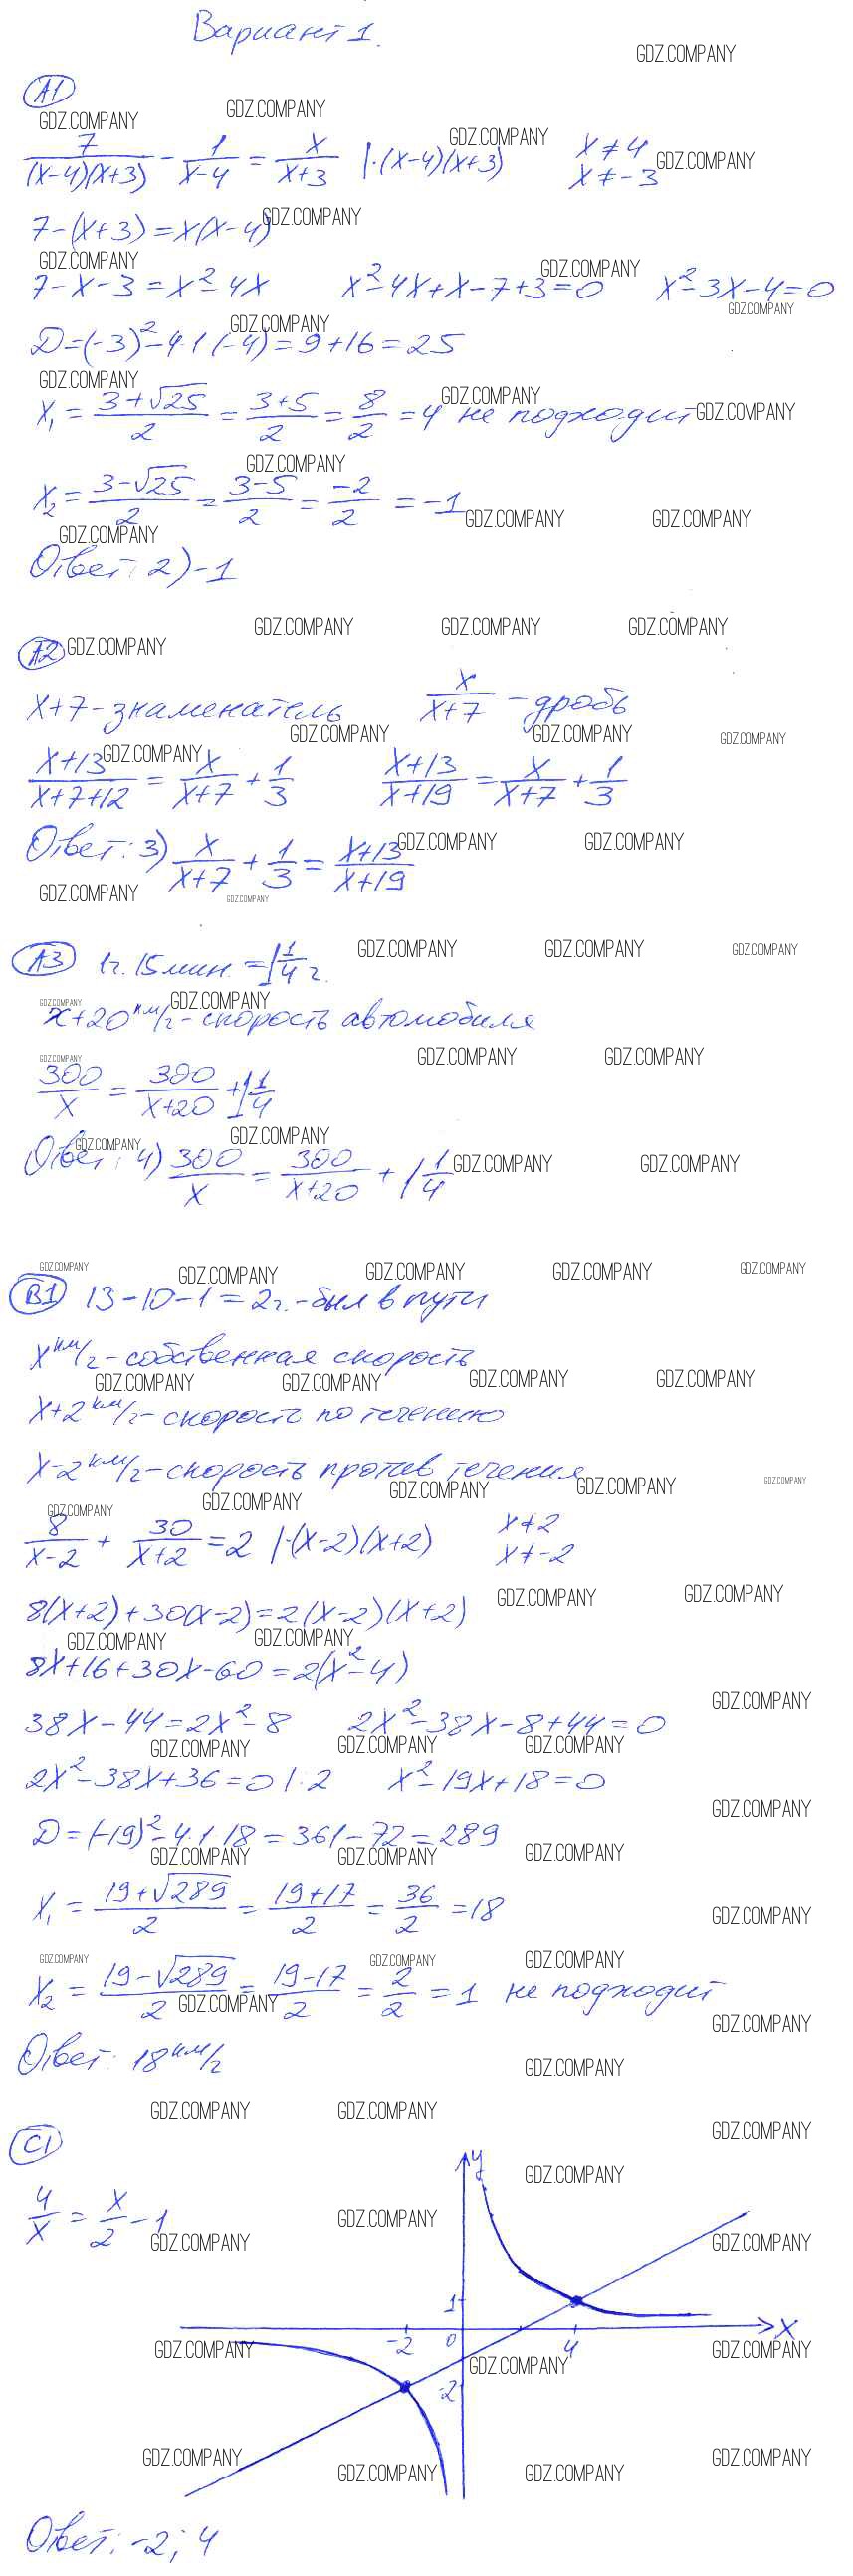 Вариант 1.
А1
7/((x-4)(x+3)) - 1/(x-4) = x/(x+3) |·(x-4)(x+3) x≠4
x≠-3
7-(x+3)=x(x-4)
7-x-3=x²-4x x²-4x+x-7+3=0 x²-3x-4=0
D=(-3)²-4·1·(-4)=9+16=25
x₁ = (3+√25)/2 = (3+5)/2 = 8/2 = 4 не подходит
x₂ = (3-√25)/2 = (3-5)/2 = -2/2 = -1
Ответ: 2) -1
А2
x+7 - знаменатель x/(x+7) - дробь
(x+13)/(x+7+12) = x/(x+7) + 1/3 (x+13)/(x+19) = x/(x+7) + 1/3
Ответ: 3) x/(x+7) + 1/3 = (x+13)/(x+19)
А3 1ч. 15 мин. = 1 1/4 ч.
x+20 км/ч - скорость автомобиля
300/x = 300/(x+20) + 1 1/4
Ответ: 4) 300/x = 300/(x+20) + 1 1/4
В1 13-10-1=2ч. - был в пути
x км/ч - собственная скорость
x+2 км/ч - скорость по течению
x-2 км/ч - скорость против течения
8/(x-2) + 30/(x+2) = 2 |·(x-2)(x+2) x≠2
x≠-2
8(x+2)+30(x-2)=2(x-2)(x+2)
8x+16+30x-60=2(x²-4)
38x-44=2x²-8 2x²-38x-8+44=0
2x²-38x+36=0 |:2 x²-19x+18=0
D=(-19)²-4·1·18=361-72=289
x₁ = (19+√289)/2 = (19+17)/2 = 36/2 = 18
x₂ = (19-√289)/2 = (19-17)/2 = 2/2 = 1 не подходит
Ответ: 18 км/ч
С1
4/x = x/2 - 1
y
1
-2 0 4 x
-2
Ответ: -2; 4
GDZ.COMPANY